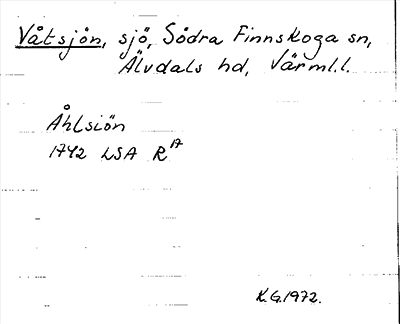 Våtsjön, sjö, Södra Finnskoga sn,
Älvdals hd, Värml.l.
Åhlsiön
1742 LSA R 17
K.G.1972.